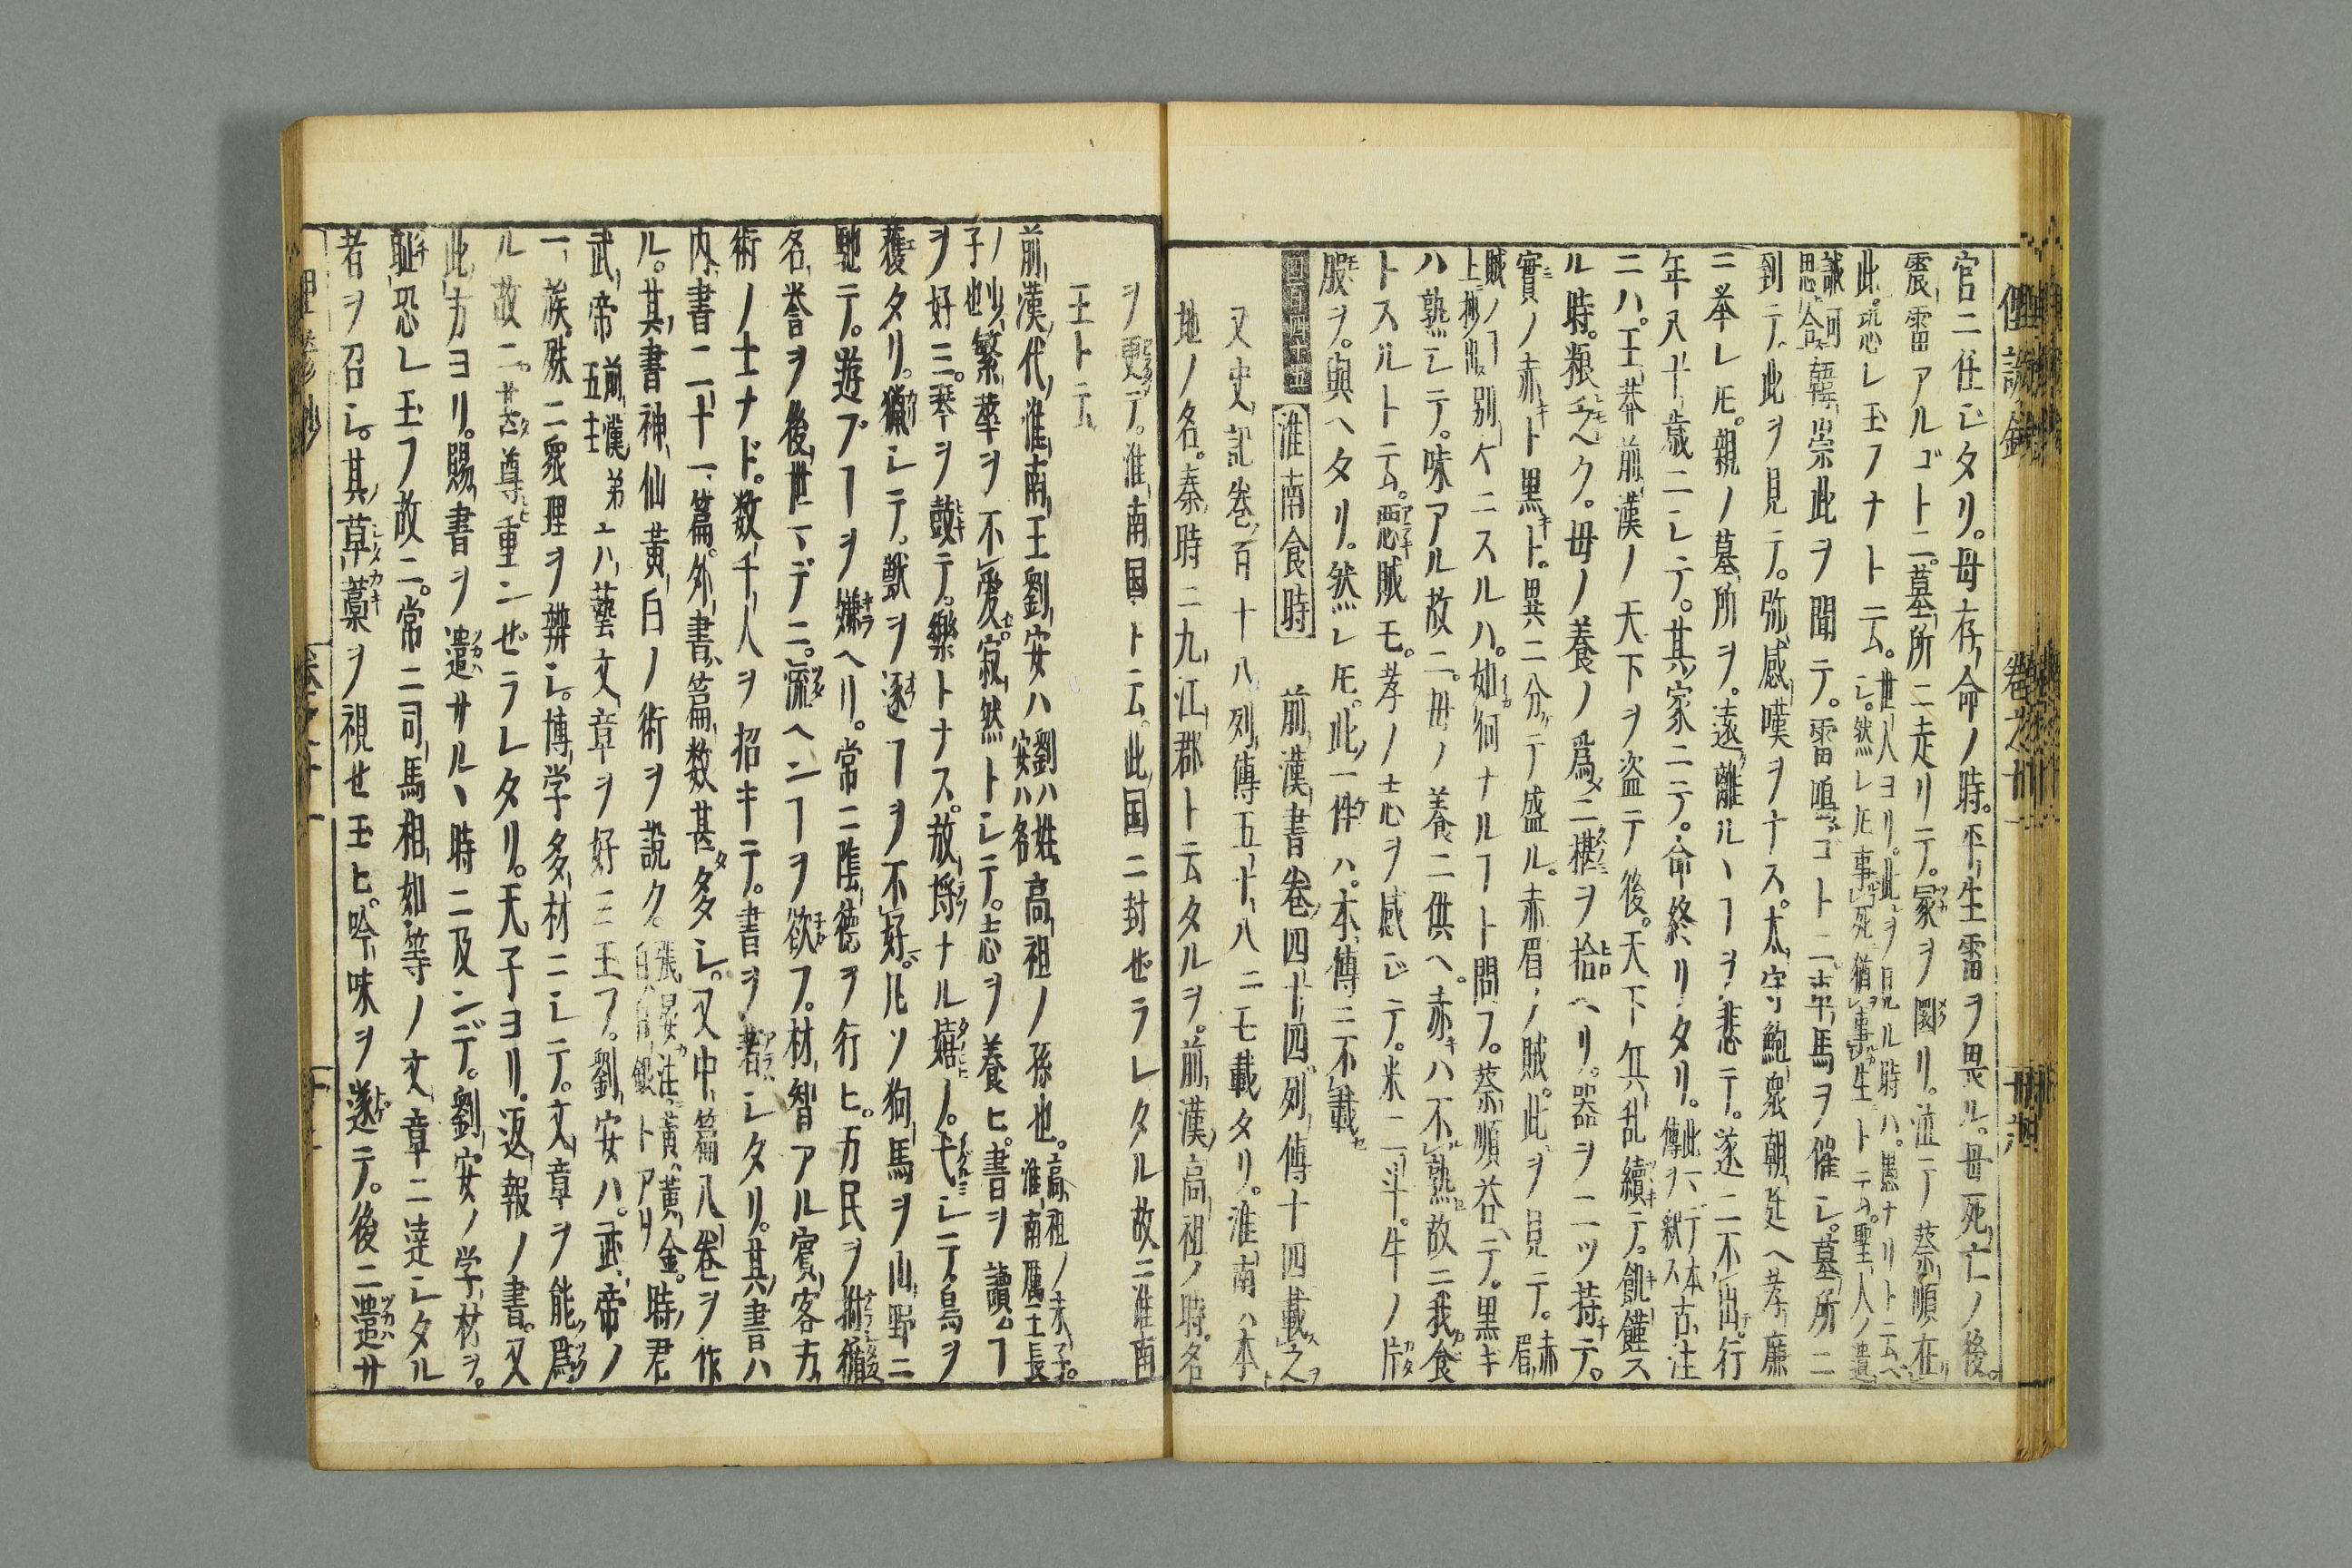 官ニ任シタリ。母存命ノ時。平生雷ヲ畏ル。母死亡ノ後。
震雷アルゴトニ。墓所ニ走リテ。冢ヲ圜リ。泣テ蔡順在
此。恐レ玉フナト云。世人ヨリ。此ヲ見ル時ハ。愚ナリト云ベ
シ。然レ𪜈事死猶事生トテ。聖人ノ遺
誡ニ
思合 韓崇此ヲ聞テ。雷鳴ゴトニ車馬ヲ催シ。墓所ニ
到ニテ。此ヲ見テ。弥感嘆ヲナス。太守鮑衆朝廷ヘ孝廉
ニ挙レ𪜈。親ノ墓所ヲ。遠離ルヽヿヲ悲テ。遂ニ不出行
年八十歳ニシテ。其家ニテ。命終リタリ。此ハ本
傳ヲ釈ス 古注
ニハ。王莽前漢ノ天下ヲ盗テ後。天下兵乱續テ。飢饉ス
ル時。粮乏ク。母ノ養ノ爲ニ椹ヲ拾ヘリ。器ヲ二ツ持テ。
實ノ赤ト黒ト。異ニ分テ盛ル。赤眉ノ賊。此ヲ見テ。赤
眉
賊ノヿ
上 別々ニスルハ。如何ナルヿト問フ。蔡順荅テ。黒キ
ハ熟シテ。味アル故ニ。母ノ養ニ供ヘ。赤ハ不熟故ニ我食
トスルト云。悪賊モ。孝ノ志ヲ感ジテ。米二斗。牛ノ片
股ヲ。與ヘタリ。然レ𪜈。此一件ハ。本傳ニ不載
淮南食時 前漢書巻四十四列傳十四載之
又史記巻百十八列傳五十八ニモ載タリ。淮南ハ本
地ノ名。秦時ニ九江郡ト云タルヲ。前漢高祖ノ時。名
ヲ更テ。淮南国ト云。此国ニ封ゼラレタル故ニ淮南
王トテ
前漢代淮南王劉安ハ 劉ハ姓
安ハ名 高祖ノ孫也。高祖ノ末子。
淮南厲王長
ノ
子也 少繁華ヲ不愛寂然トシテ。志ヲ養ヒ。書ヲ讀ムヿ
ヲ好ミ。琴ヲ鼓テ。樂トナス。放埒ナル嬉ノ。弋シテ鳥ヲ
獲タリ。獵シテ。獣ヲ逐ヿヲ不好。凡ソ狗馬ヲ山野ニ
馳テ。遊ブヿヲ嫌ヘリ。常ニ隂徳ヲ行ヒ。万民ヲ拊循
名誉ヲ後世マデニ。流ヘンヿヲ欲フ。材智アル賓客方
術ノ士ナド。数千人ヲ招キテ。書ヲ著シタリ。其書ハ
内書二十一篇。外書篇数甚多シ。又中篇八巻ヲ作
ル。其書神仙黄白ノ術ヲ説ク。張晏注。黄黄金。
白白銀トアリ 時君
武帝 前漢
五主 第ニハ藝文章ヲ好ミ玉フ。劉安ハ。武帝ノ
一族。殊ニ衆理ヲ辨シ。博学多材ニシテ。文章ヲ能爲
ル故ニ。甚尊重ンゼラレタリ。天子ヨリ。返報ノ書。又
此方ヨリ。賜書ヲ遣サルヽ時ニ及ンデ。劉安ノ学材ヲ。
耻恐レ玉フ故ニ。常ニ司馬相如等ノ文章ニ達シタル
者ヲ召シ。其草藁ヲ視セ玉ヒ。吟味ヲ遂テ。後ニ遣サ